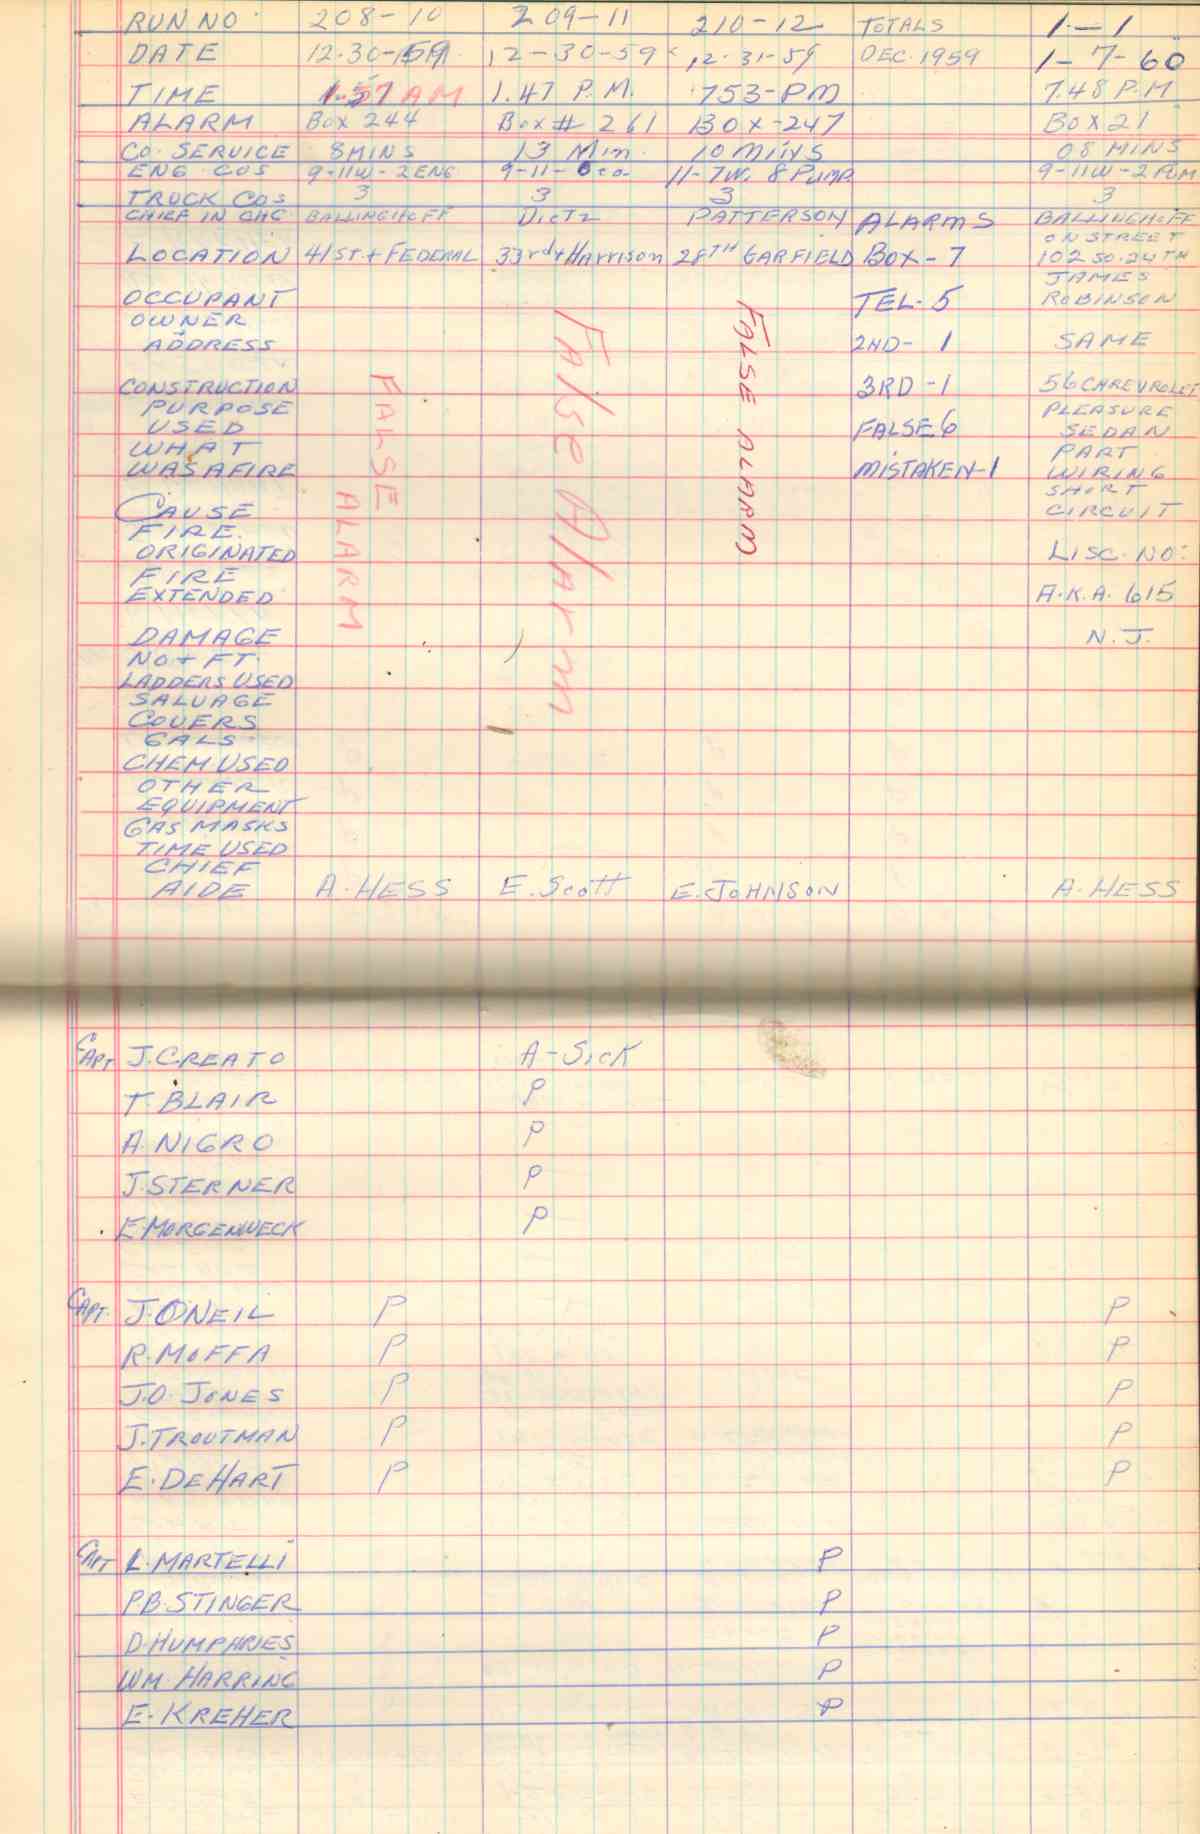 RUN NO. 208-10 209-11 210-12 TOTALS 1-1
DATE 12-30-59 12-30-59 12-31-59 DEC. 1959 1-7-60
TIME 1.57 AM 1.47 P.M. 753-PM 7.48 P.M
ALARM BOX 244 Box # 261 BOX-247 BOX 21
CO. SERVICE 8 MINS 13 Min. 10 MINS 08 MINS
ENG. COS 9-11W-2ENG 9-11- 11-7W. 8 PUMP 9-11W-2 PUM
TRUCK COS 3 3 3 3
CHIEF IN CHG BALLINGHOFF Dietz PATTERSON ALARMS BALLINGHOFF
LOCATION 41ST. + FEDERAL 33rd + Harrison 28TH GARFIELD BOX-7 ON STREET
102 SO. 24TH
OCCUPANT TEL-5 JAMES
ROBINSON
OWNER
ADDRESS 2ND-1 SAME
CONSTRUCTION 3RD-1 56 CHREVROLET
PURPOSE PLEASURE
USED FALSE 6 SEDAN
WHAT PART
WAS AFIRE MISTAKEN-1 WIRING
CAUSE SHORT
CIRCUIT
FIRE
ORIGINATED LISC. NO:
FIRE
EXTENDED A.K.A. 615
DAMAGE N.J.
FALSE ALARM
False Alarm
FALSE ALARM
NO + FT.
LADDERS USED
SALVAGE
COVERS
GALS.
CHEM USED
OTHER
EQUIPMENT
GAS MASKS
TIME USED
CHIEF
AIDE A. HESS E. Scott E. JOHNSON A. HESS
CAPT J. CREATO A-SICK
T. BLAIR P
A. NIGRO P
J. STERNER P
E. MORGENWECK P
CAPT. J. ONEIL P P
R. MOFFA P P
J.O. JONES P P
J. TROUTMAN P P
E. DEHART P P
CAPT L. MARTELLI P
P.B. STINGER P
D. HUMPHRIES P
WM. HARRING P
E. KREHER P